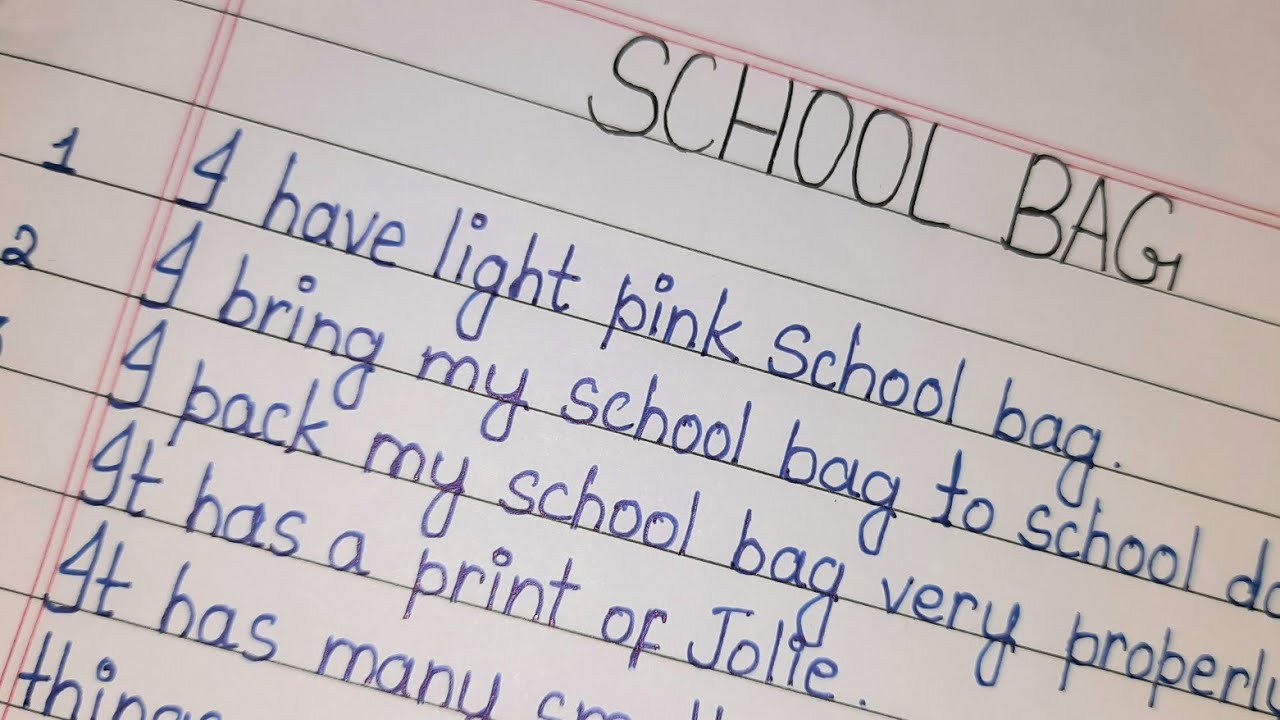 SCHOOL BAG
1 I have light pink school bag.
2 I bring my school bag to school
I pack my school bag very properly
It has a print of Jolie.
It has many
things